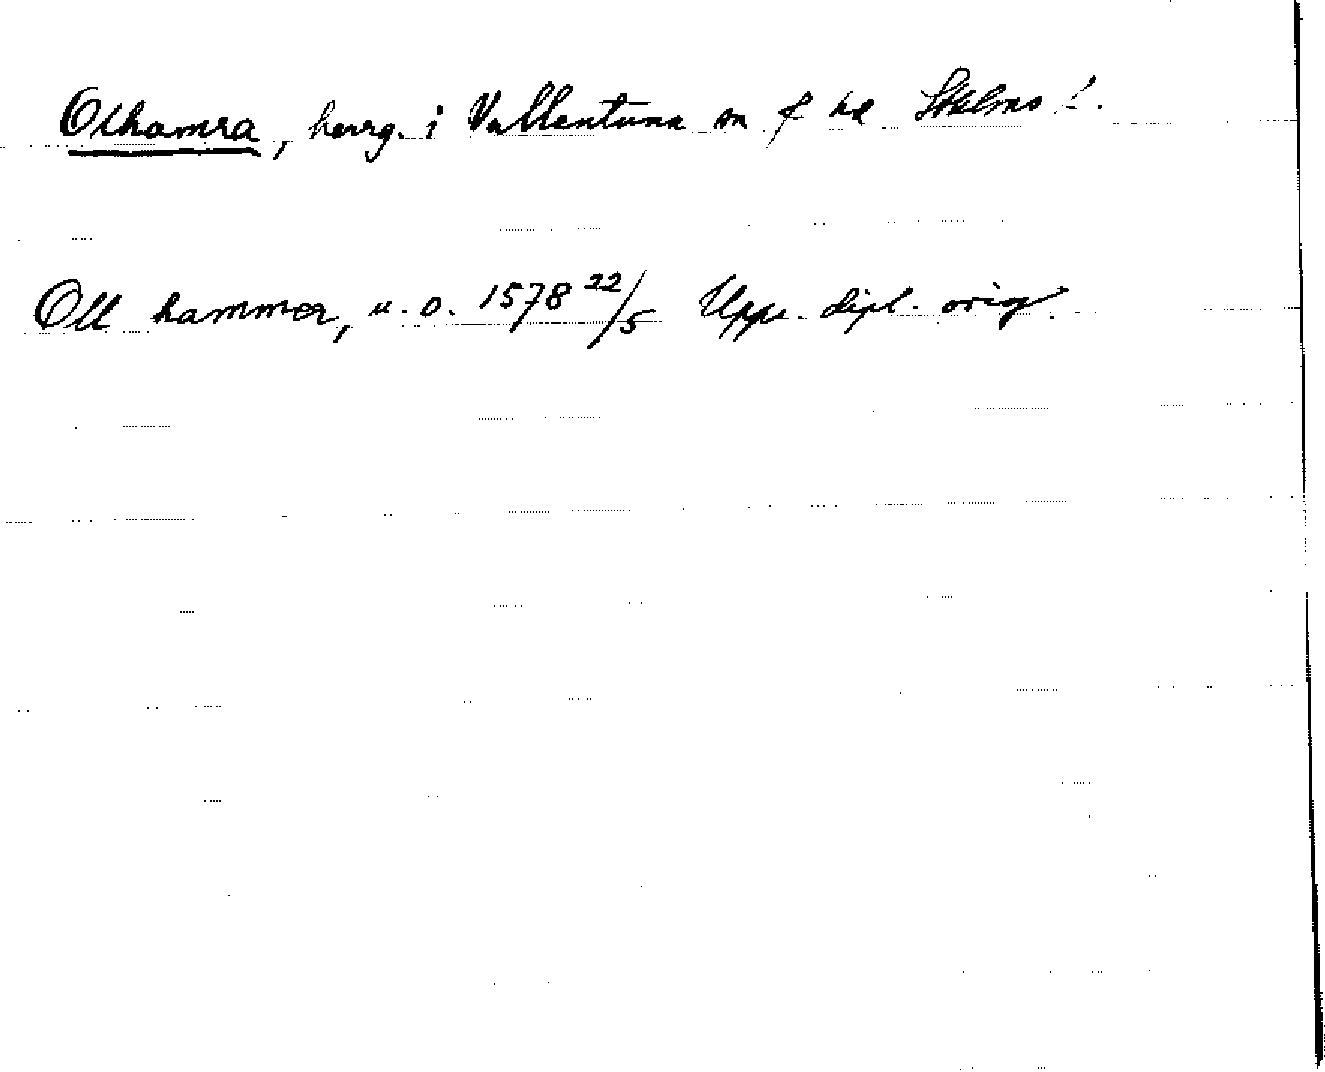 Olhamra, herrg. i Vallentuna sn f hd Sthlms l.
Oll hammer, u. o. 1578 22/5 Upps. dipl. orig.